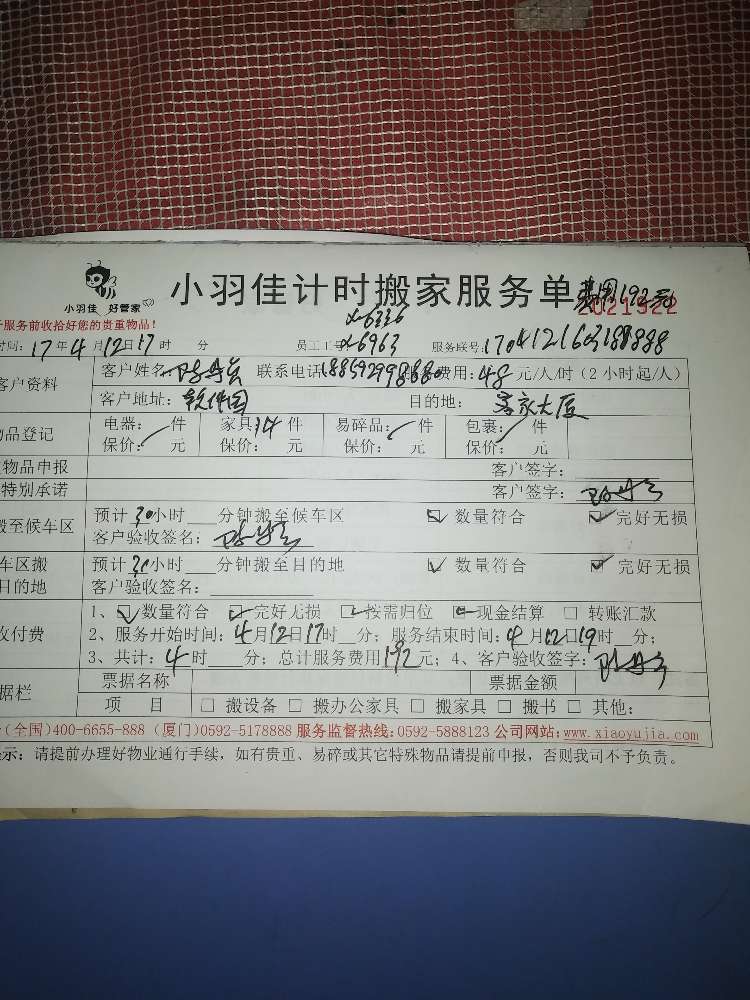 小羽佳 好管家
小羽佳计时搬家服务单 费用192元
2021922
服务前收拾好您的贵重物品!
d-6336
时间: 17年4月12日17时 分 员工工号 d-6963 服务联号:
客户资料 客户姓名 联系电话 费用: 48元/人/时 (2小时起/人)
客户地址: 软件园 目的地:
物品登记 电器: 件 家具: 14件 易碎品: 件 包裹: 件
保价: 元 保价: 元 保价: 元 保价: 元
物品申报 客户签字:
特别承诺 客户签字:
搬至候车区 预计 小时 分钟搬至候车区 数量符合 完好无损
客户验收签名:
车区搬 目的地 预计 小时 分钟搬至目的地 数量符合 完好无损
客户验收签名:
收付费 1、数量符合 完好无损 按需归位 现金结算 转账汇款
2、服务开始时间: 4月12日17时 分; 服务结束时间: 4月12日19时 分;
3、共计: 4时 分; 总计服务费用192元; 4、客户验收签字:
据栏 票据名称 票据金额
项 目 搬设备 搬办公家具 搬家具 搬书 其他:
(全国)400-6655-888 (厦门)0592-5178888 服务监督热线:0592-5888123 公司网站:www.xiaoyujia.com
示: 请提前办理好物业通行手续, 如有贵重、易碎或其它特殊物品请提前申报, 否则我司不予负责。